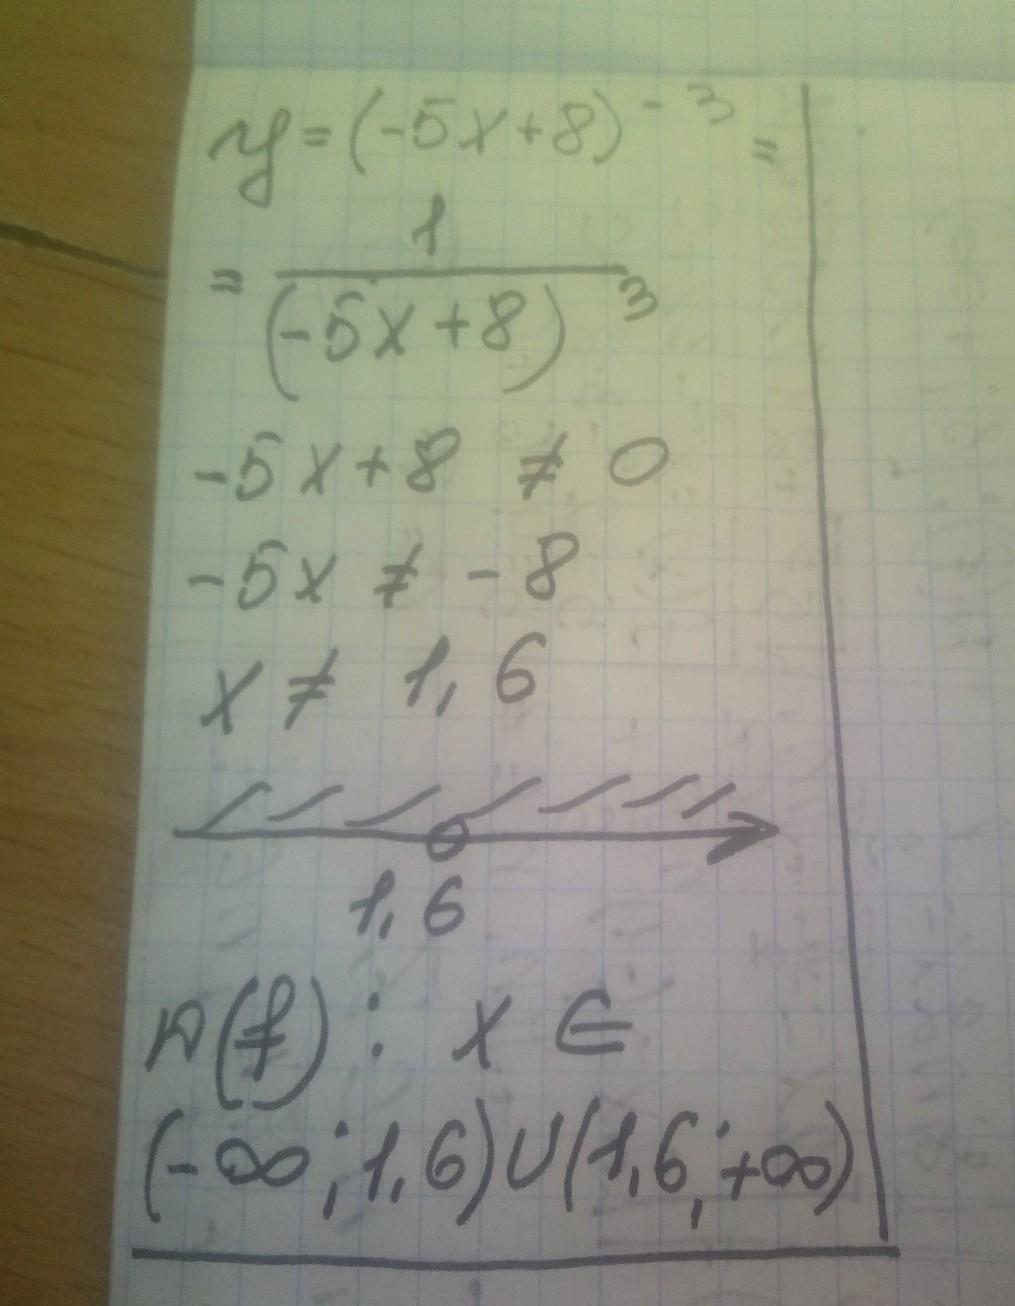 y = (-5x+8)^{-3} =
= \frac{1}{(-5x+8)^3}
-5x+8 ≠ 0
-5x ≠ -8
x ≠ 1,6
1,6
D(f): x ∈
(-∞; 1,6)∪(1,6; +∞)